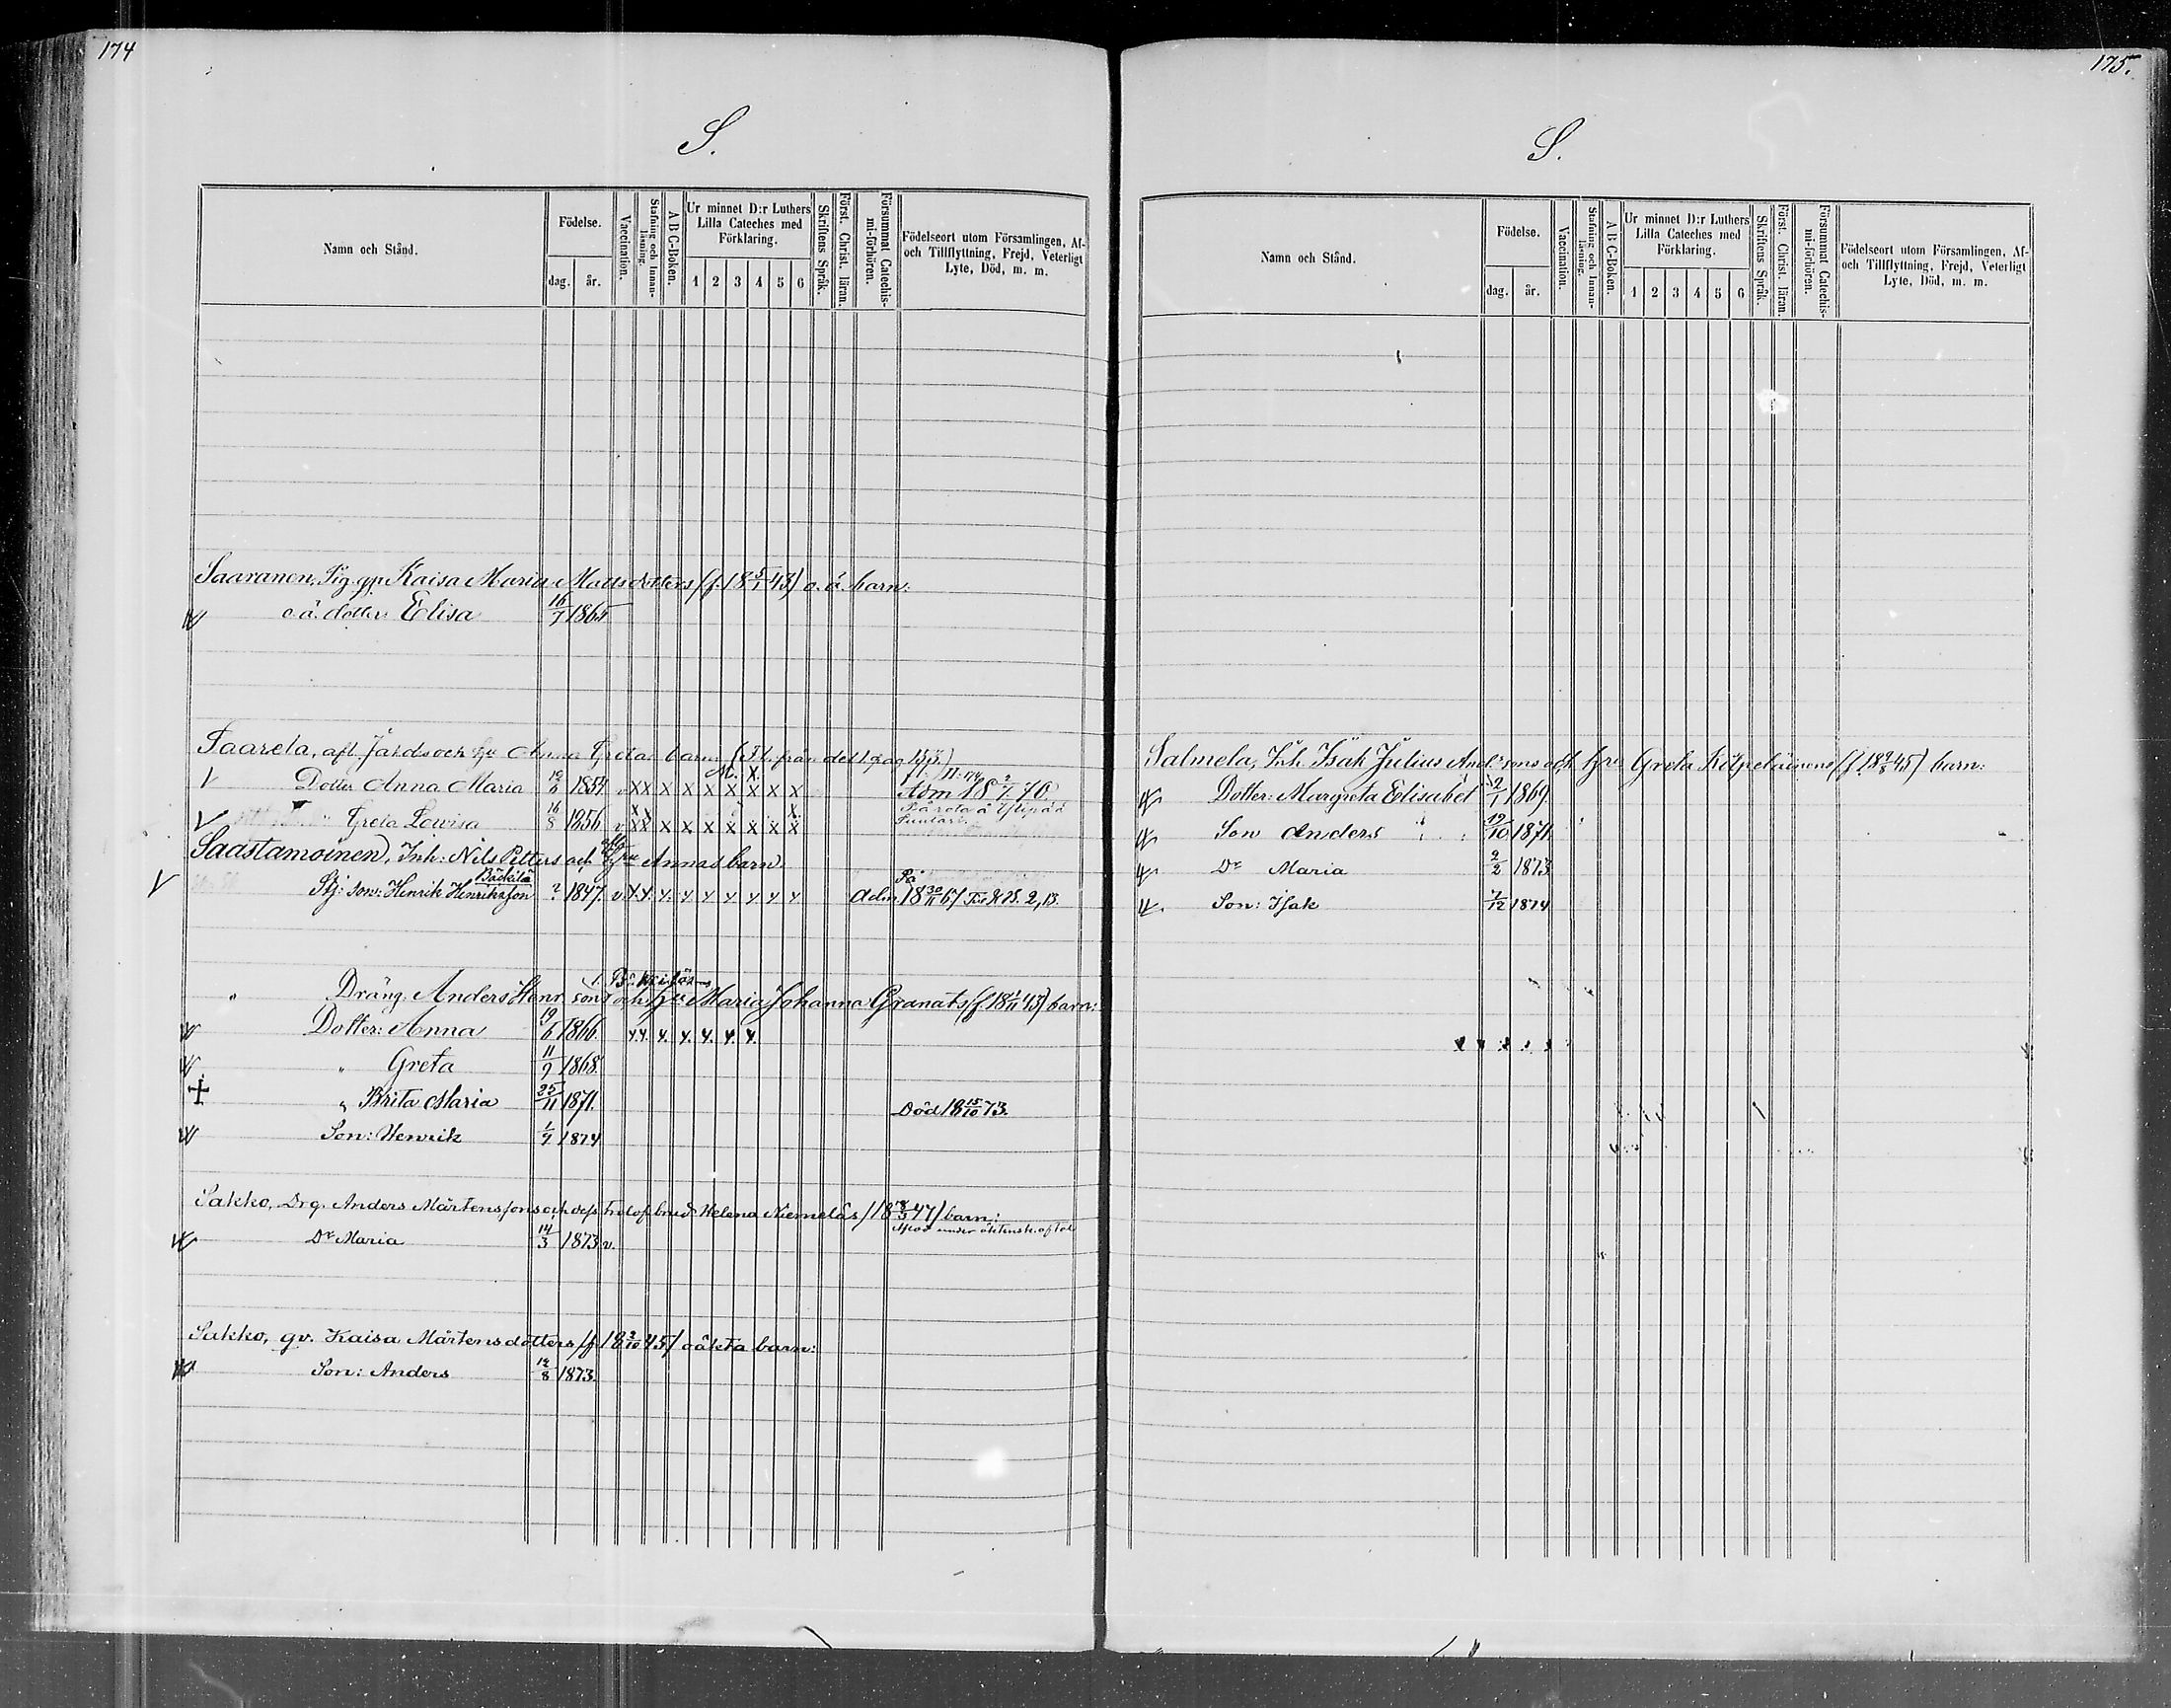 174
S.
Namn och Stånd.
Födelse.
dag.
år.
Vaccination.
Stafning och Innan-
läsning.
A B C-Boken.
Ur minnet D:r Luthers
Lilla Cateches med
Förklaring.
1 2 3 4 5 6
Skriftens Språk.
Först. Christ. läran.
Försummat Catechis-
mi-förhören.
Födelseort utom Församlingen, Af-
och Tillflyttning, Frejd, Veterligt
Lyte, Död, m. m.
Saaranen, Pig. Kaisa Maria Mattsdotters (f. 18 5/1 43) o. ä. barn:
o ä. dotter Elisa 16/7 1865
Saarela, afl. och Hu Anna Greta barn
M. X.
Dotter Anna Maria 12/6 1854 v XX X X X X X X X Adm 18 2/7 70.
X X
" Greta Lovisa 16/8 1856 v XX X X X X X X X
Saastamoinen, Inh: Nils Petters och Hu Annas barn
Bäckilä På
Stj: son: Henrik Henriksson ? 1847. v. Y.Y. y. y y y y. y. y Adm 18 30/11 67
Dräng. Anders Henr. son och Hu Maria Johanna Granats (f. 18 1/11 43) barn:
Dotter: Anna 19/6 1866. y.y. y. y. y. y. y.
" Greta 11/9 1868.
" Brita Maria 25/11 1871. Död 18 15/10 73.
Son: Henrik 1/7 1874
Sakko, Drg. Anders Mårtenssons och dess trolof. brud Helena Niemeläs barn:
under äktensk. aftal
Dr Maria 14/3 1873 v.
Sakko, gv. Kaisa Mårtensdotters /f 18 2/10 45/ oäkta barn:
Son: Anders 12/8 1873.
175.
S.
Namn och Stånd.
Födelse.
dag.
år.
Vaccination.
Stafning och Innan-
läsning.
A B C-Boken.
Ur minnet D:r Luthers
Lilla Cateches med
Förklaring.
1 2 3 4 5 6
Skriftens Språk.
Först. Christ. läran.
Försummat Catechis-
mi-förhören.
Födelseort utom Församlingen, Af-
och Tillflyttning, Frejd, Veterligt
Lyte, Död, m. m.
Salmela, Inh. Isak Julius And:sons och Hu Greta barn:
Dotter: Margreta Elisabet 2/1 1869.
Son Anders 19/10 1871.
Dr Maria 2/2 1873
Son: Isak 7/12 1874